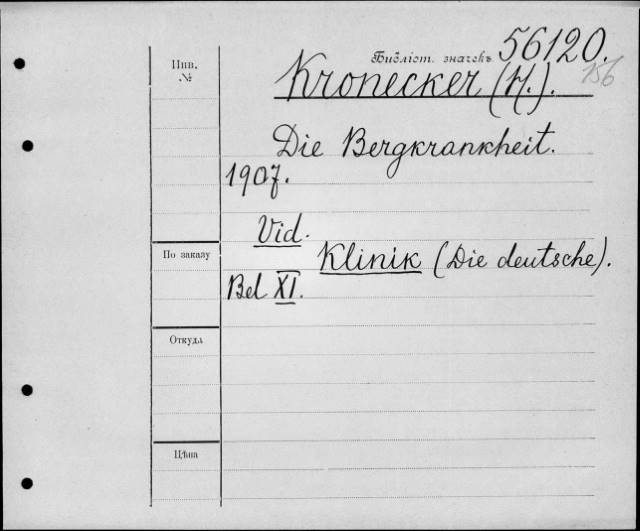 Инв.
№
Библіот. значекъ 56120.
156
Kronecker (H.).
Die Bergkrankheit.
1907.
Vid.
По заказу
Klinik (Die deutsche).
Bd XI.
Откуда
Цѣна